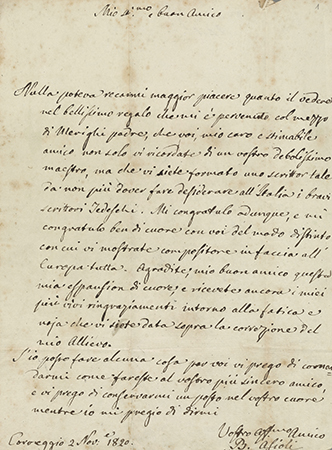 Mio C.mo e buon Amico
Nulla poteva recarmi maggior piacere quanto il vedere
nel bellissimo regalo che mi è pervenuto col mezzo
di Merighi padre, che voi, mio caro e stimabile
amico non solo vi ricordate di un vostro debolissimo
maestro, ma che vi siete formato uno scrittor tale
da non più dover fare desiderare all'Italia i bravi
scrittori Tedeschi. Mi congratulo adunque, e mi
congratulo ben di cuore con voi del modo distinto
con cui vi mostrate compositore in faccia all'
Europa tutta. Aggradite, mio buon amico questa
mia espansion di cuore, e ricevete ancora i miei
più vivi ringraziamenti intorno alla fatica e
noja che vi siete data sopra la correzione del
mio Allievo.
S'io posso fare alcuna cosa per voi vi prego di coman
darmi come fareste al vostro più sincero amico
e vi prego di conservarmi un posto nel vostro cuore
mentre io mi pregio di dirmi
Vostro Aff.mo Amico
B. Asioli
Correggio 2 Nov.e 1820.